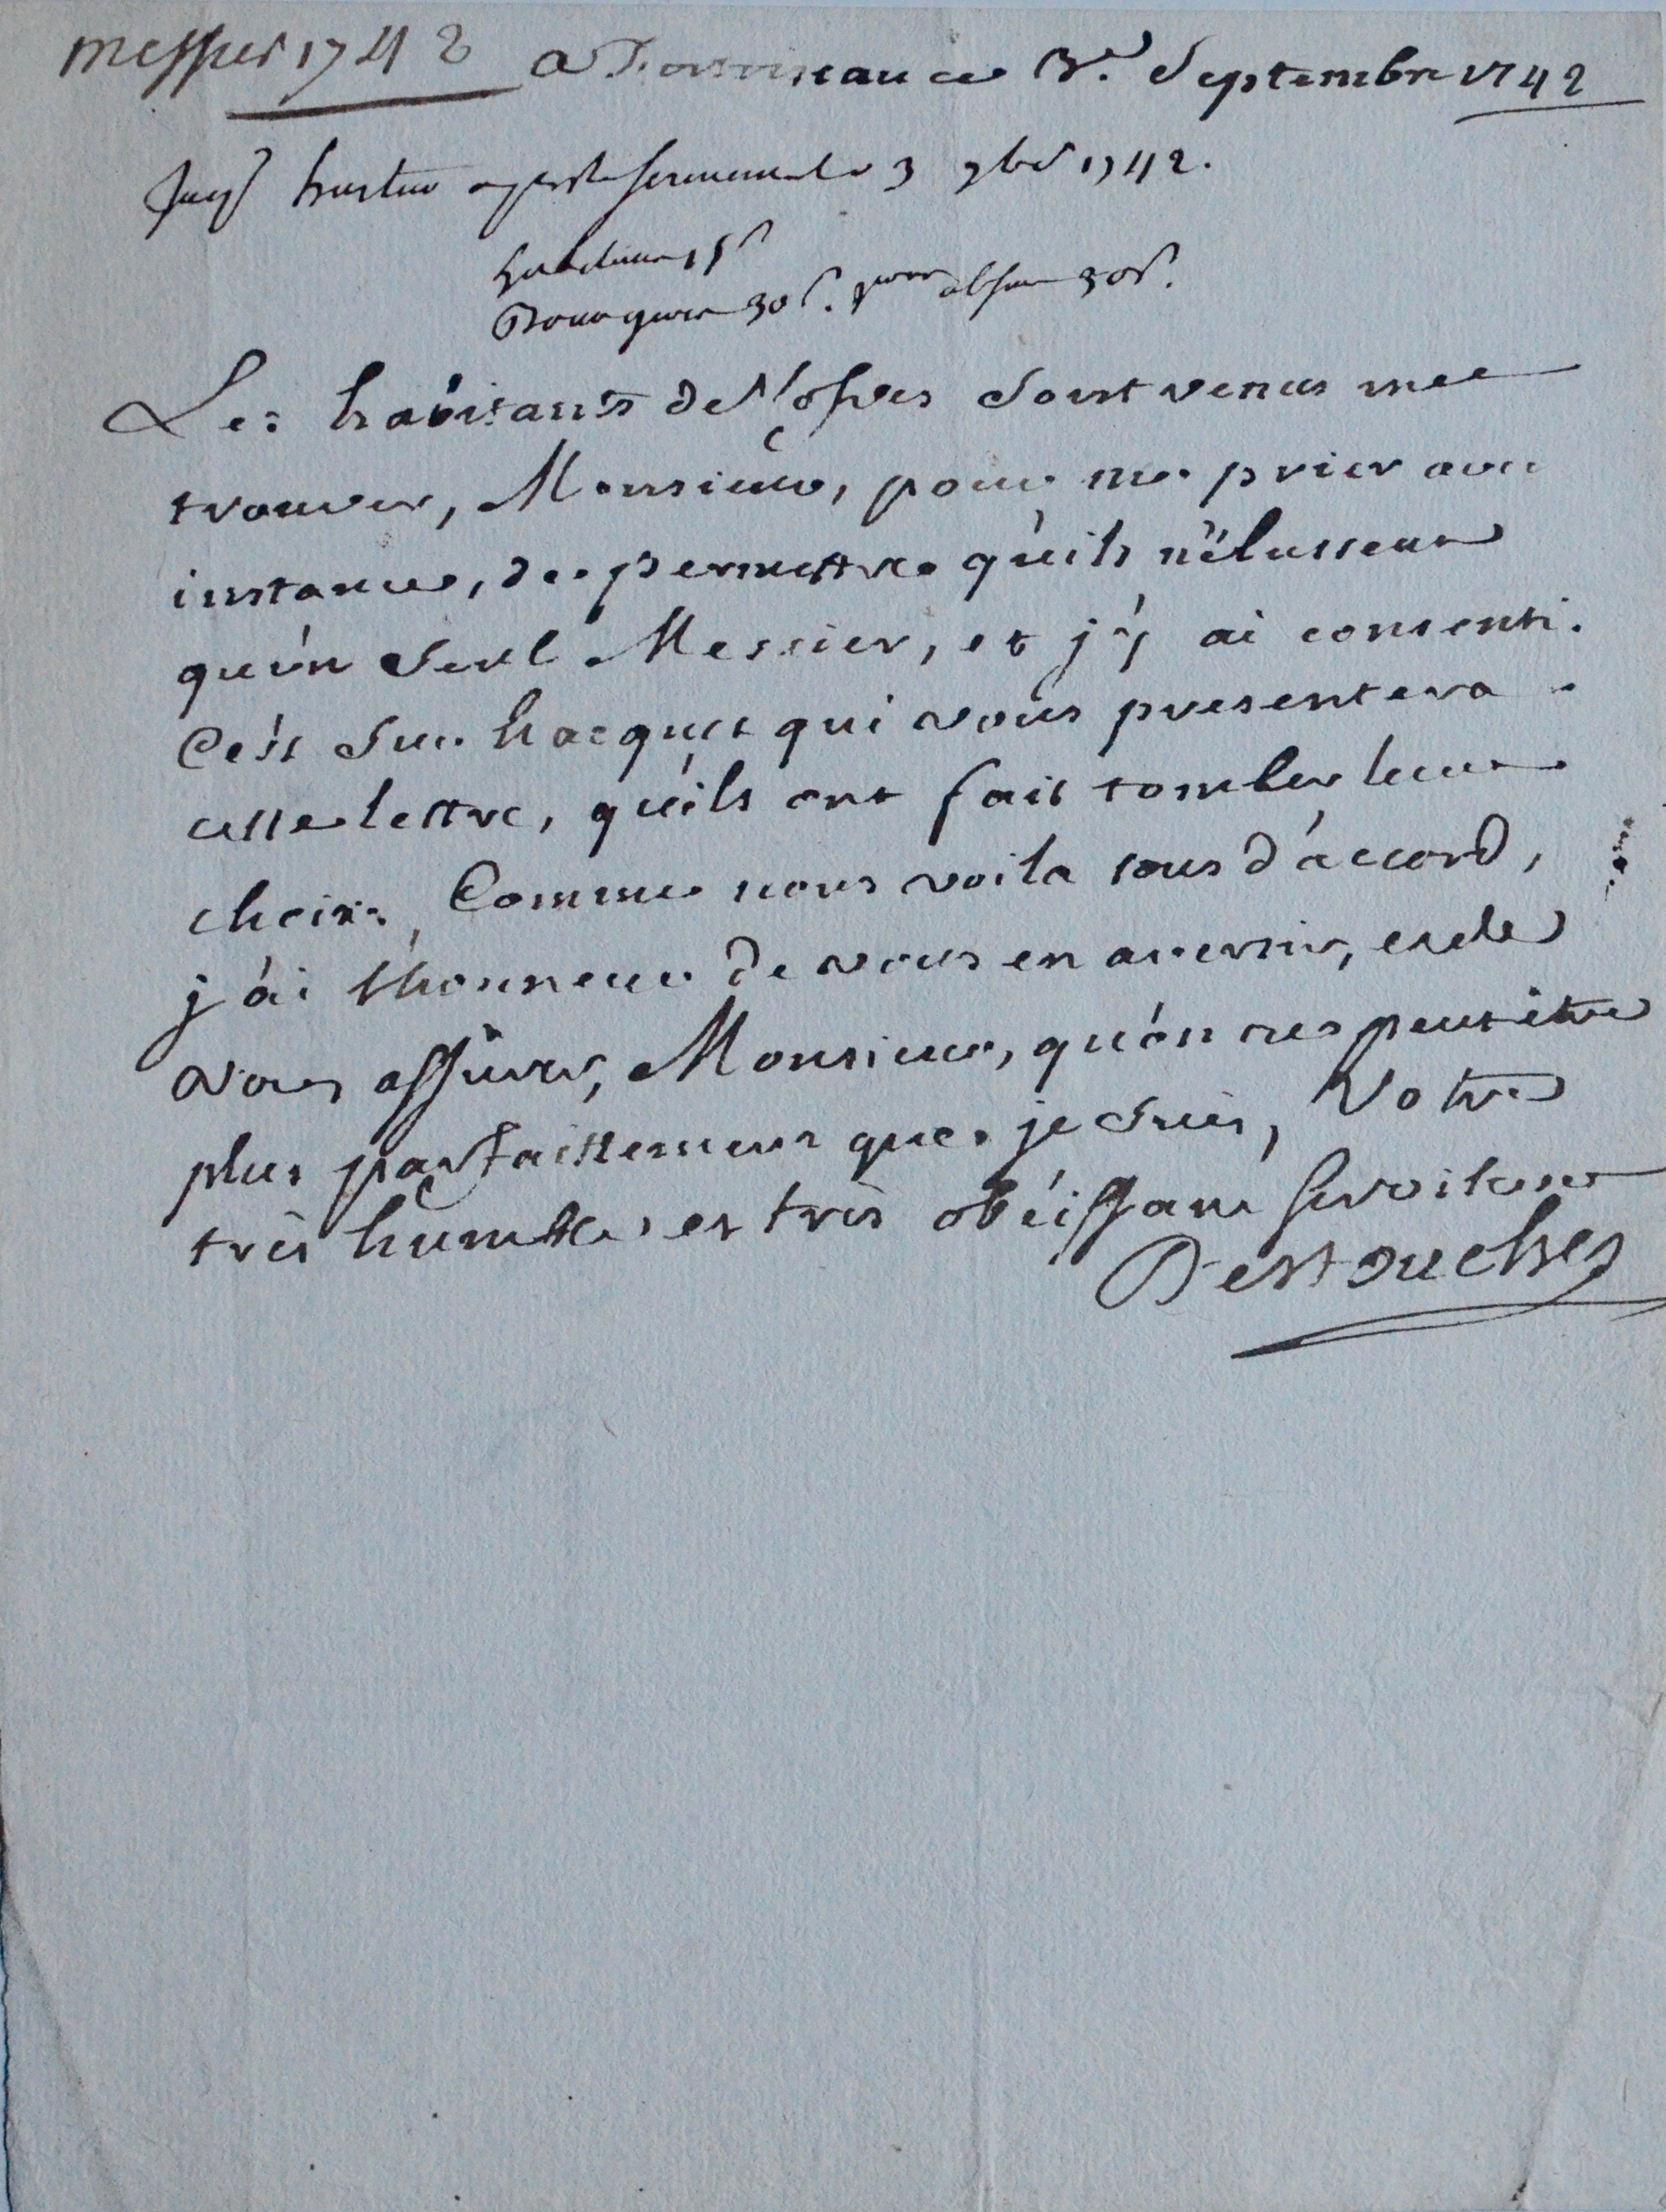 messier 1742 a Fortoiseau ce 3.e Septembre 1742
a presté serment le 3 7bre 1742.
30 s. pour absen 30 s.
Les habitants de Vosves sont venus me
trouver, Monsieur, pour me prier avec
instance, de permettre qu'ils n'élussent
qu'ún seul Messier, et j'y ai consenti.
C'est sur hacquet qui vous presentera
cette lettre, qu'ils ont fait tomber leur
choix, Comme nous voila tous d'accord,
j'ái l'honneur de vous en avertir, et de
vous assurer, Monsieur, qu'ón ne peut être
plus parfaittement que je suis, Votre
très humble et très obéissant serviteur
Destouches